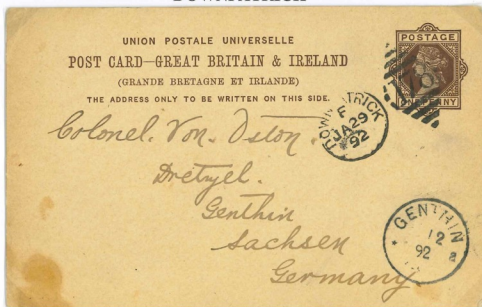 UNION POSTALE UNIVERSELLE
POST CARD—GREAT BRITAIN & IRELAND
(GRANDE BRETAGNE ET IRLANDE)
THE ADDRESS ONLY TO BE WRITTEN ON THIS SIDE.
POSTAGE
ONE PENNY
DOWNPATRICK
F
JA 29
92
Colonel. Von. Oston.
Dretzel.
Genthin
Sachsen
Germany
GENTHIN
12
92